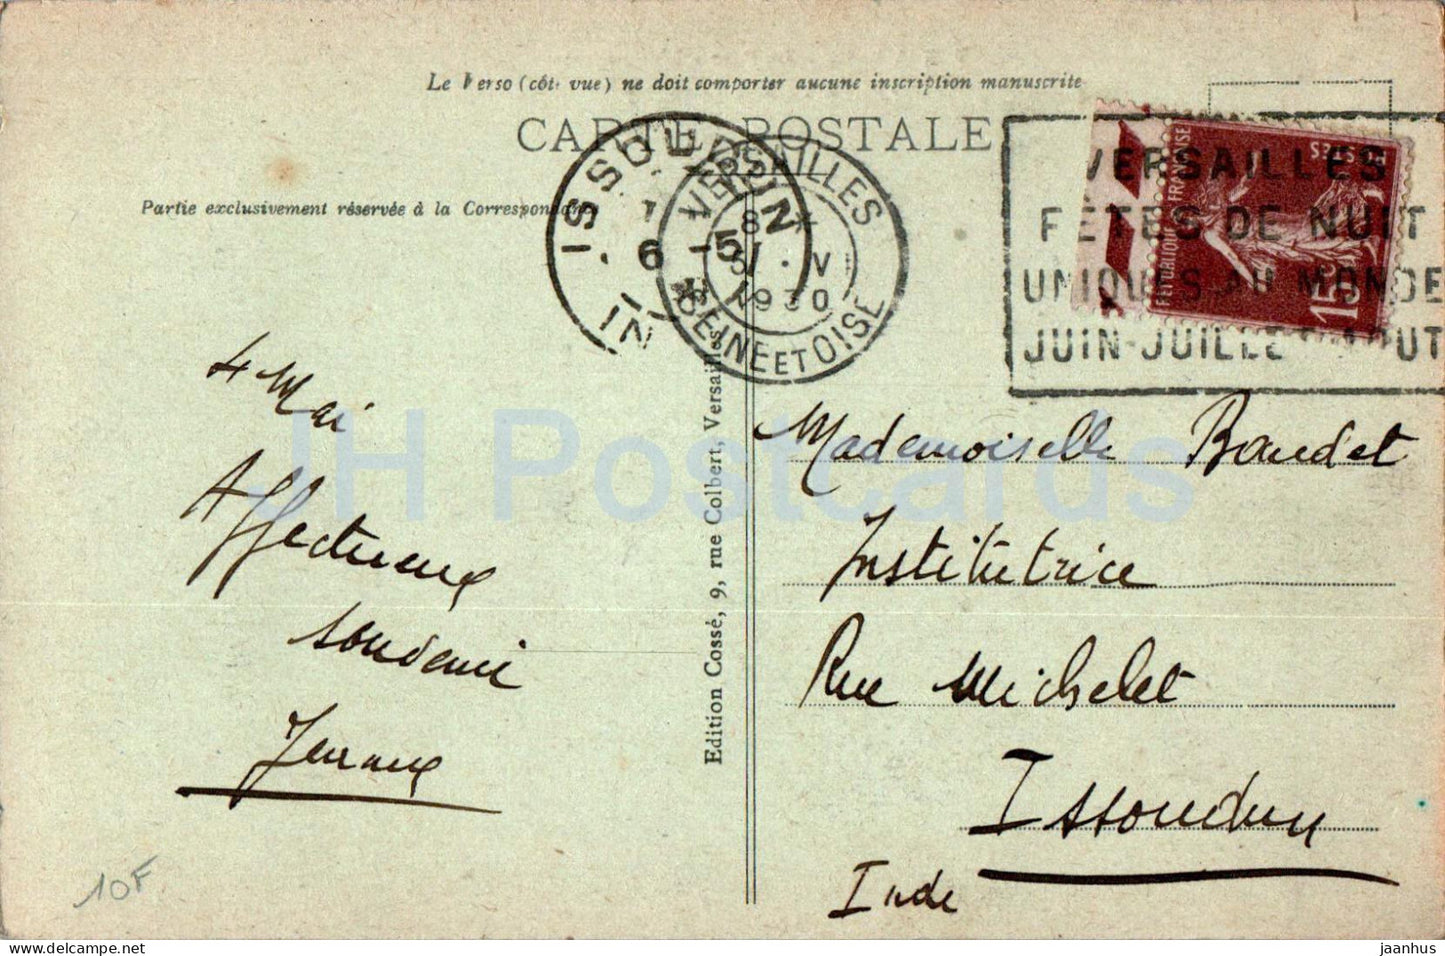 Le Verso (côté vue) ne doit comporter aucune inscription manuscrite
CARTE POSTALE
Partie exclusivement réservée à la Correspondance
ISSOUDUN
6 -5
IN
VERSAILLES
8
5 . V
1930
SEINE ET OISE
VERSAILLES
FÊTES DE NUIT
UNIQUES AU MONDE
JUIN-JUILLET AOUT
REPUBLIQUE FRANÇAISE
POSTES
15
4 Mai
Affectueux
souvenir
Edition Cossé, 9, rue Colbert, Versailles
Mademoiselle Baudet
Institutrice
Rue Michelet
Issoudun
Inde
10F
JH Postcards
jaanhus